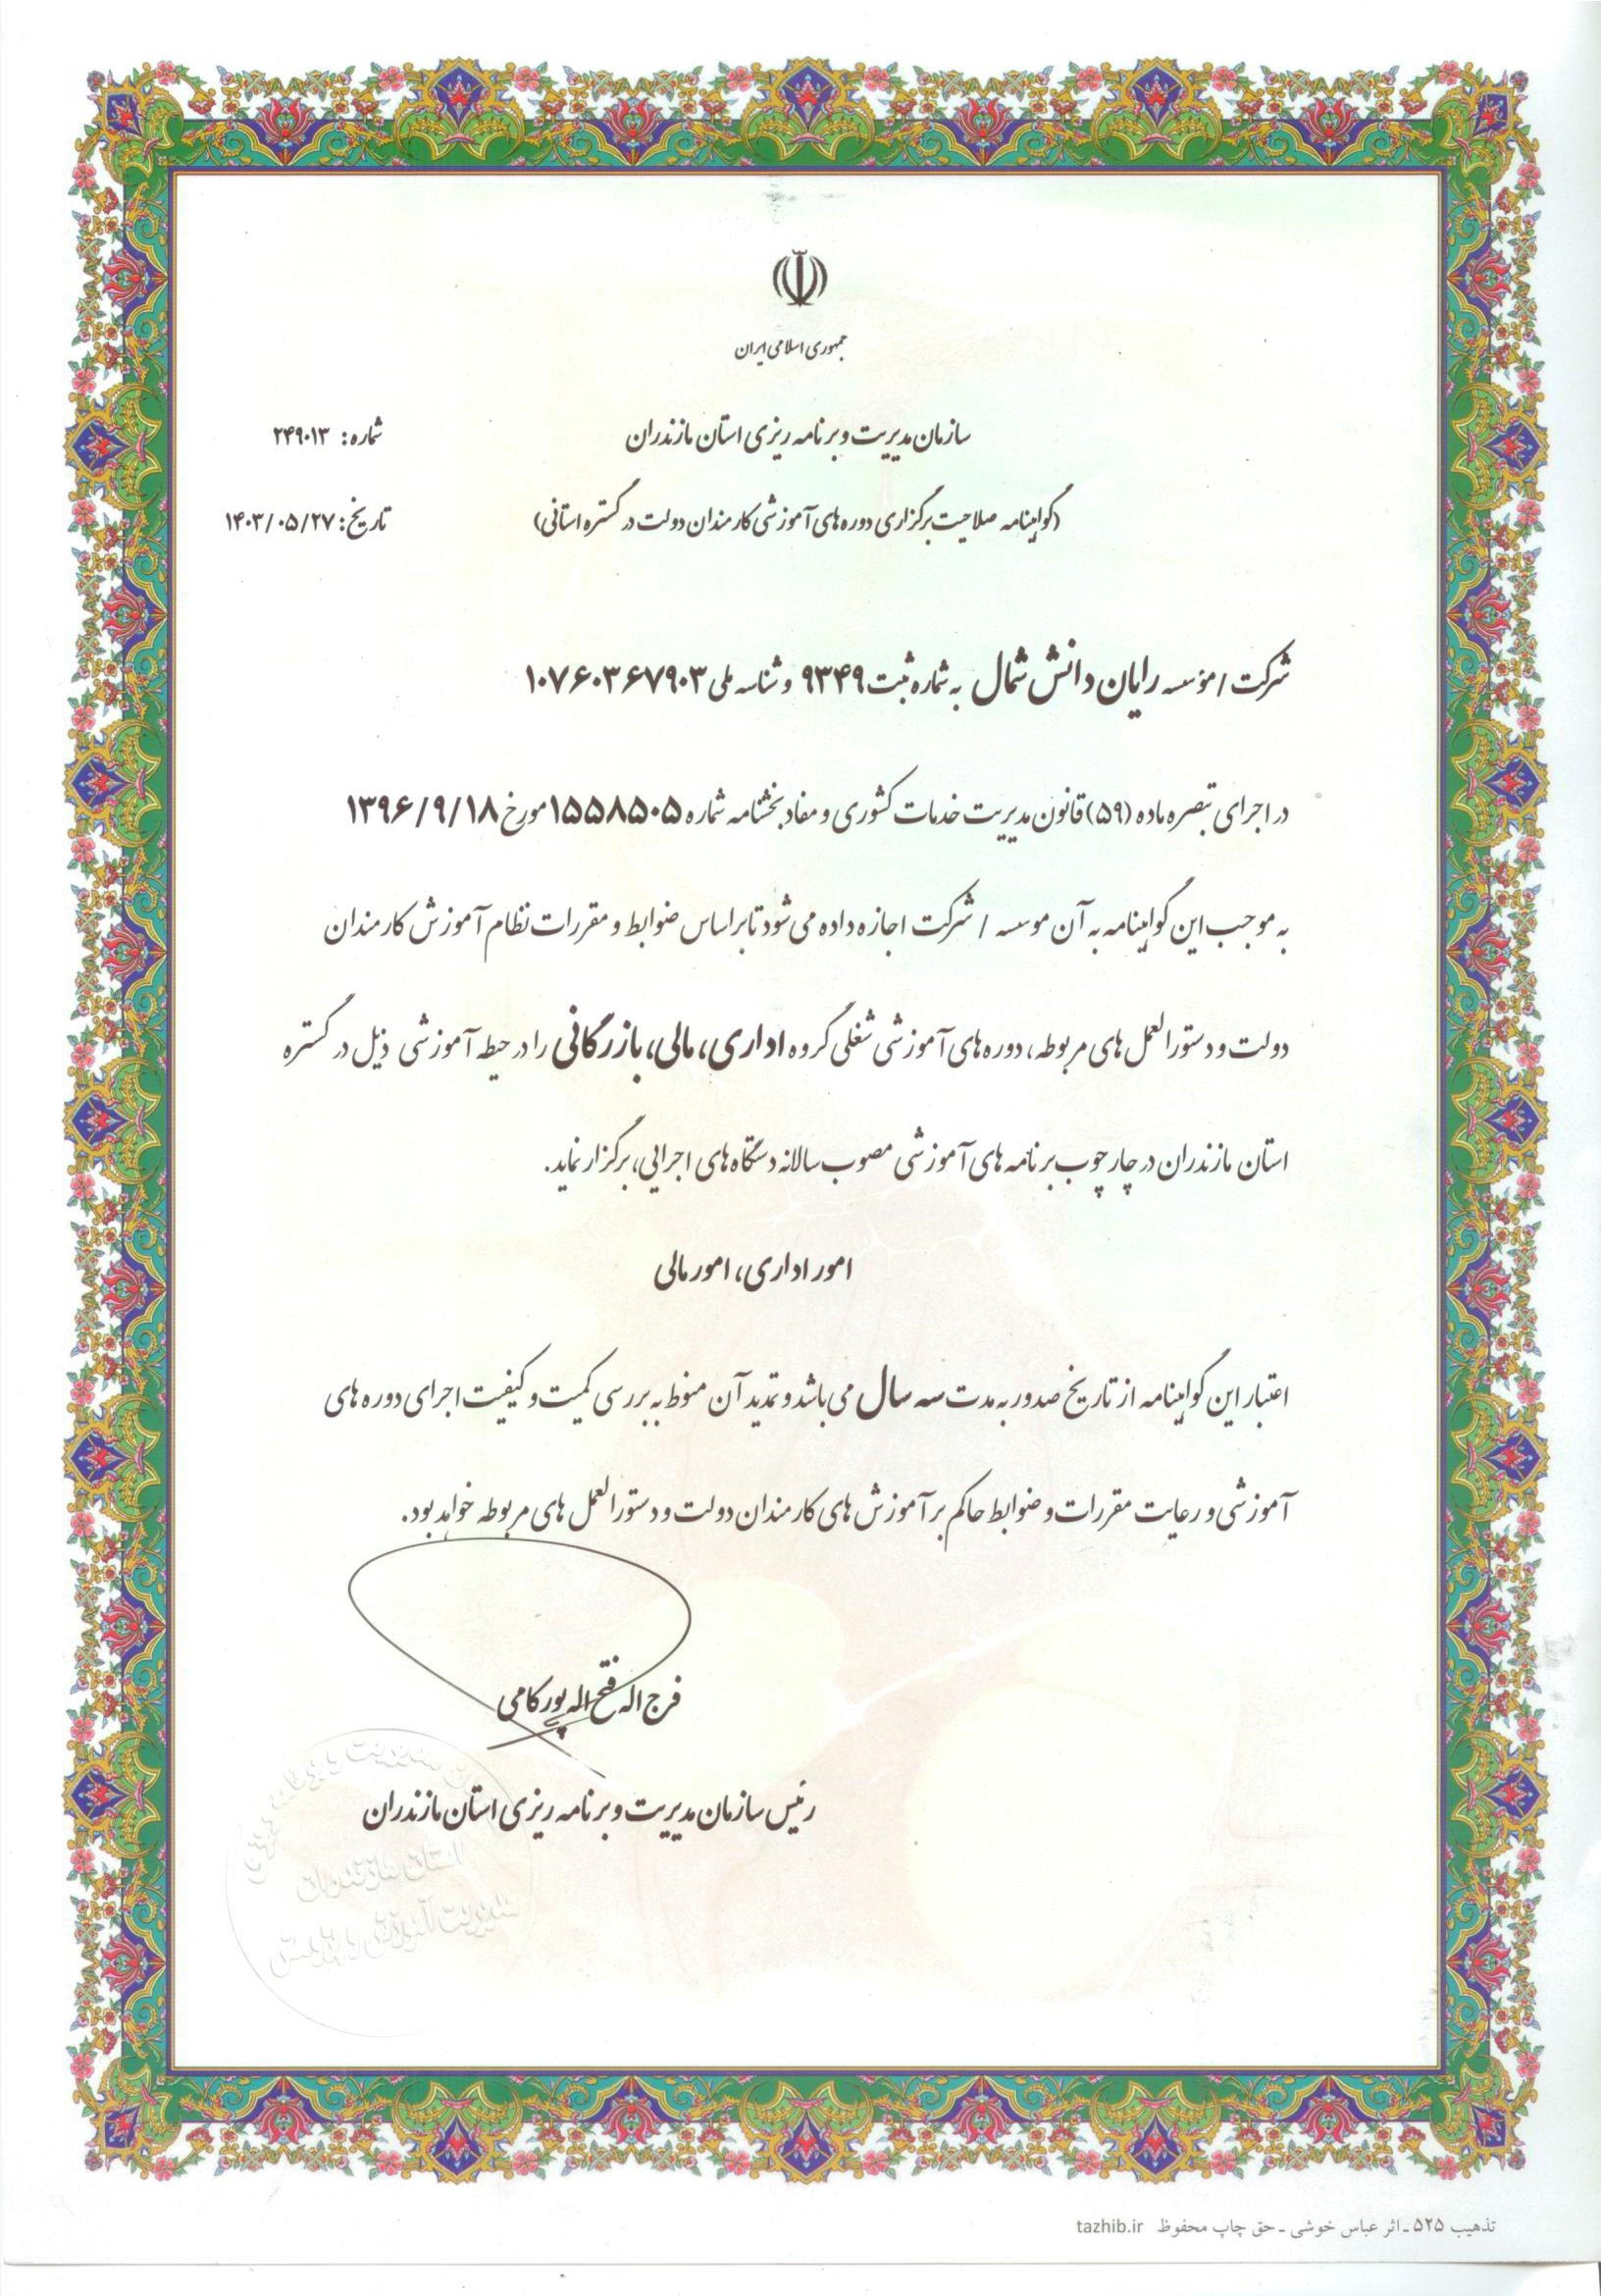 جمهوری اسلامی ایران
سازمان مدیریت و برنامه ریزی استان مازندران
شماره: ۲۴۹۰۱۳
(گواهینامه صلاحیت برگزاری دوره های آموزشی کارمندان دولت در گستره استانی)
تاریخ: ۱۴۰۳/۰۵/۲۷
شرکت / مؤسسه رایان دانش شمال به شماره ثبت ۹۳۴۹ و شناسه ملی ۱۰۷۶۰۳۶۷۹۰۳
در اجرای تبصره ماده (۵۹) قانون مدیریت خدمات کشوری و مفاد بخشنامه شماره ۱۵۵۸۵۰۵ مورخ ۱۳۹۶/۹/۱۸
به موجب این گواهینامه به آن موسسه / شرکت اجازه داده می شود تا بر اساس ضوابط و مقررات نظام آموزش کارمندان
دولت و دستورالعمل های مربوطه، دوره های آموزشی شغلی گروه اداری، مالی، بازرگانی را در حیطه آموزشی ذیل در گستره
استان مازندران در چارچوب برنامه های آموزشی مصوب سالانه دستگاه های اجرایی، برگزار نماید.
امور اداری، امور مالی
اعتبار این گواهینامه از تاریخ صدور به مدت سه سال می باشد و تمدید آن منوط به بررسی کمیت و کیفیت اجرای دوره های
آموزشی و رعایت مقررات و ضوابط حاکم بر آموزش های کارمندان دولت و دستورالعمل های مربوطه خواهد بود.
فرج اله فتح اله پور کامی
رئیس سازمان مدیریت و برنامه ریزی استان مازندران
استان مازندران
مدیریت آموزش و پژوهش
تذهیب ۵۲۵ ـ اثر عباس خوشی ـ حق چاپ محفوظ tazhib.ir